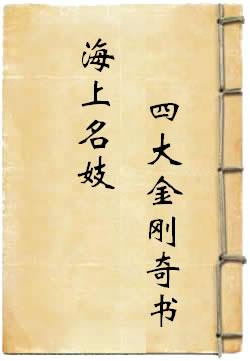 海上名妓
四大金刚奇书